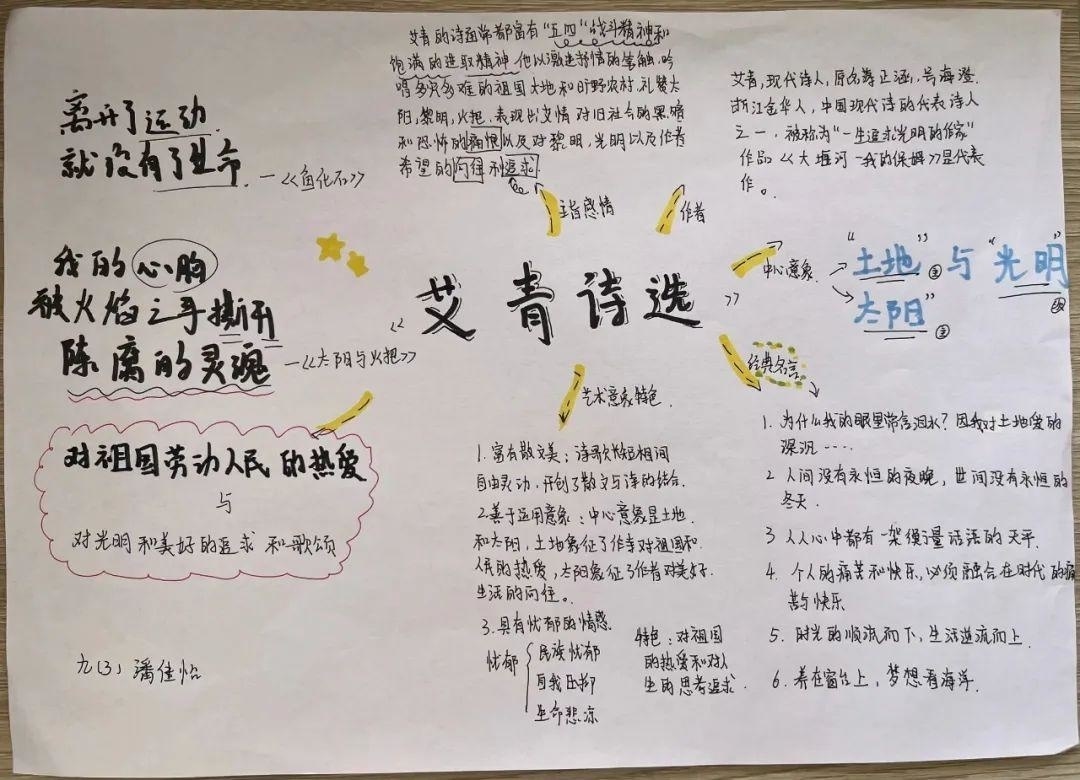 艾青的诗通常都富有“五四”战斗精神和
饱满的进取精神,他以激进抒情的笔触,吟
唱多灾多难的祖国大地和旷野农村,礼赞太
阳,黎明,火把,表现出文情对旧社会的黑暗
和恐怖的痛恨以及对黎明,光明以及作者
希望的向往和追求。
主旨感情
艾青,现代诗人,原名蒋正涵,号海澄.
浙江金华人,中国现代诗的代表诗人
之一,被称为“一生追求光明的作家”
作品《大堰河—我的保姆》是代表
作。
作者
离开了运动
就没有了生命
—《鱼化石》
我的心胸
被火焰之手撕开
陈腐的灵魂
—《太阳与火把》
“艾青诗选”
中心意象
“土地”主 与 “光明”
太阳”主
对祖国劳动人民的热爱
与
对光明和美好的追求 和歌颂
艺术意象特色.
1.富有散文美:诗歌长短相间
自由灵动,开创了散文与诗的结合.
2.善于运用意象:中心意象是土地
和太阳,土地象征了作者对祖国和
人民的热爱,太阳象征了作者对美好
生活的向往。
3.具有忧郁的情感.
忧郁
民族忧郁
自我压抑
生命悲凉
特色:对祖国
的热爱和对人
生的思考追求.
经典名言
1.为什么我的眼里常含泪水?因我对土地爱的
深沉……
2 人间没有永恒的夜晚,世间没有永恒的
冬天.
3 人人心中都有一架衡量话语的天平.
4. 个人的痛苦和快乐,必须融合在时代的痛
苦与快乐
5. 时光的顺流而下,生活逆流而上.
6. 养在窗台上,梦想着海洋.
九(3) 潘佳怡